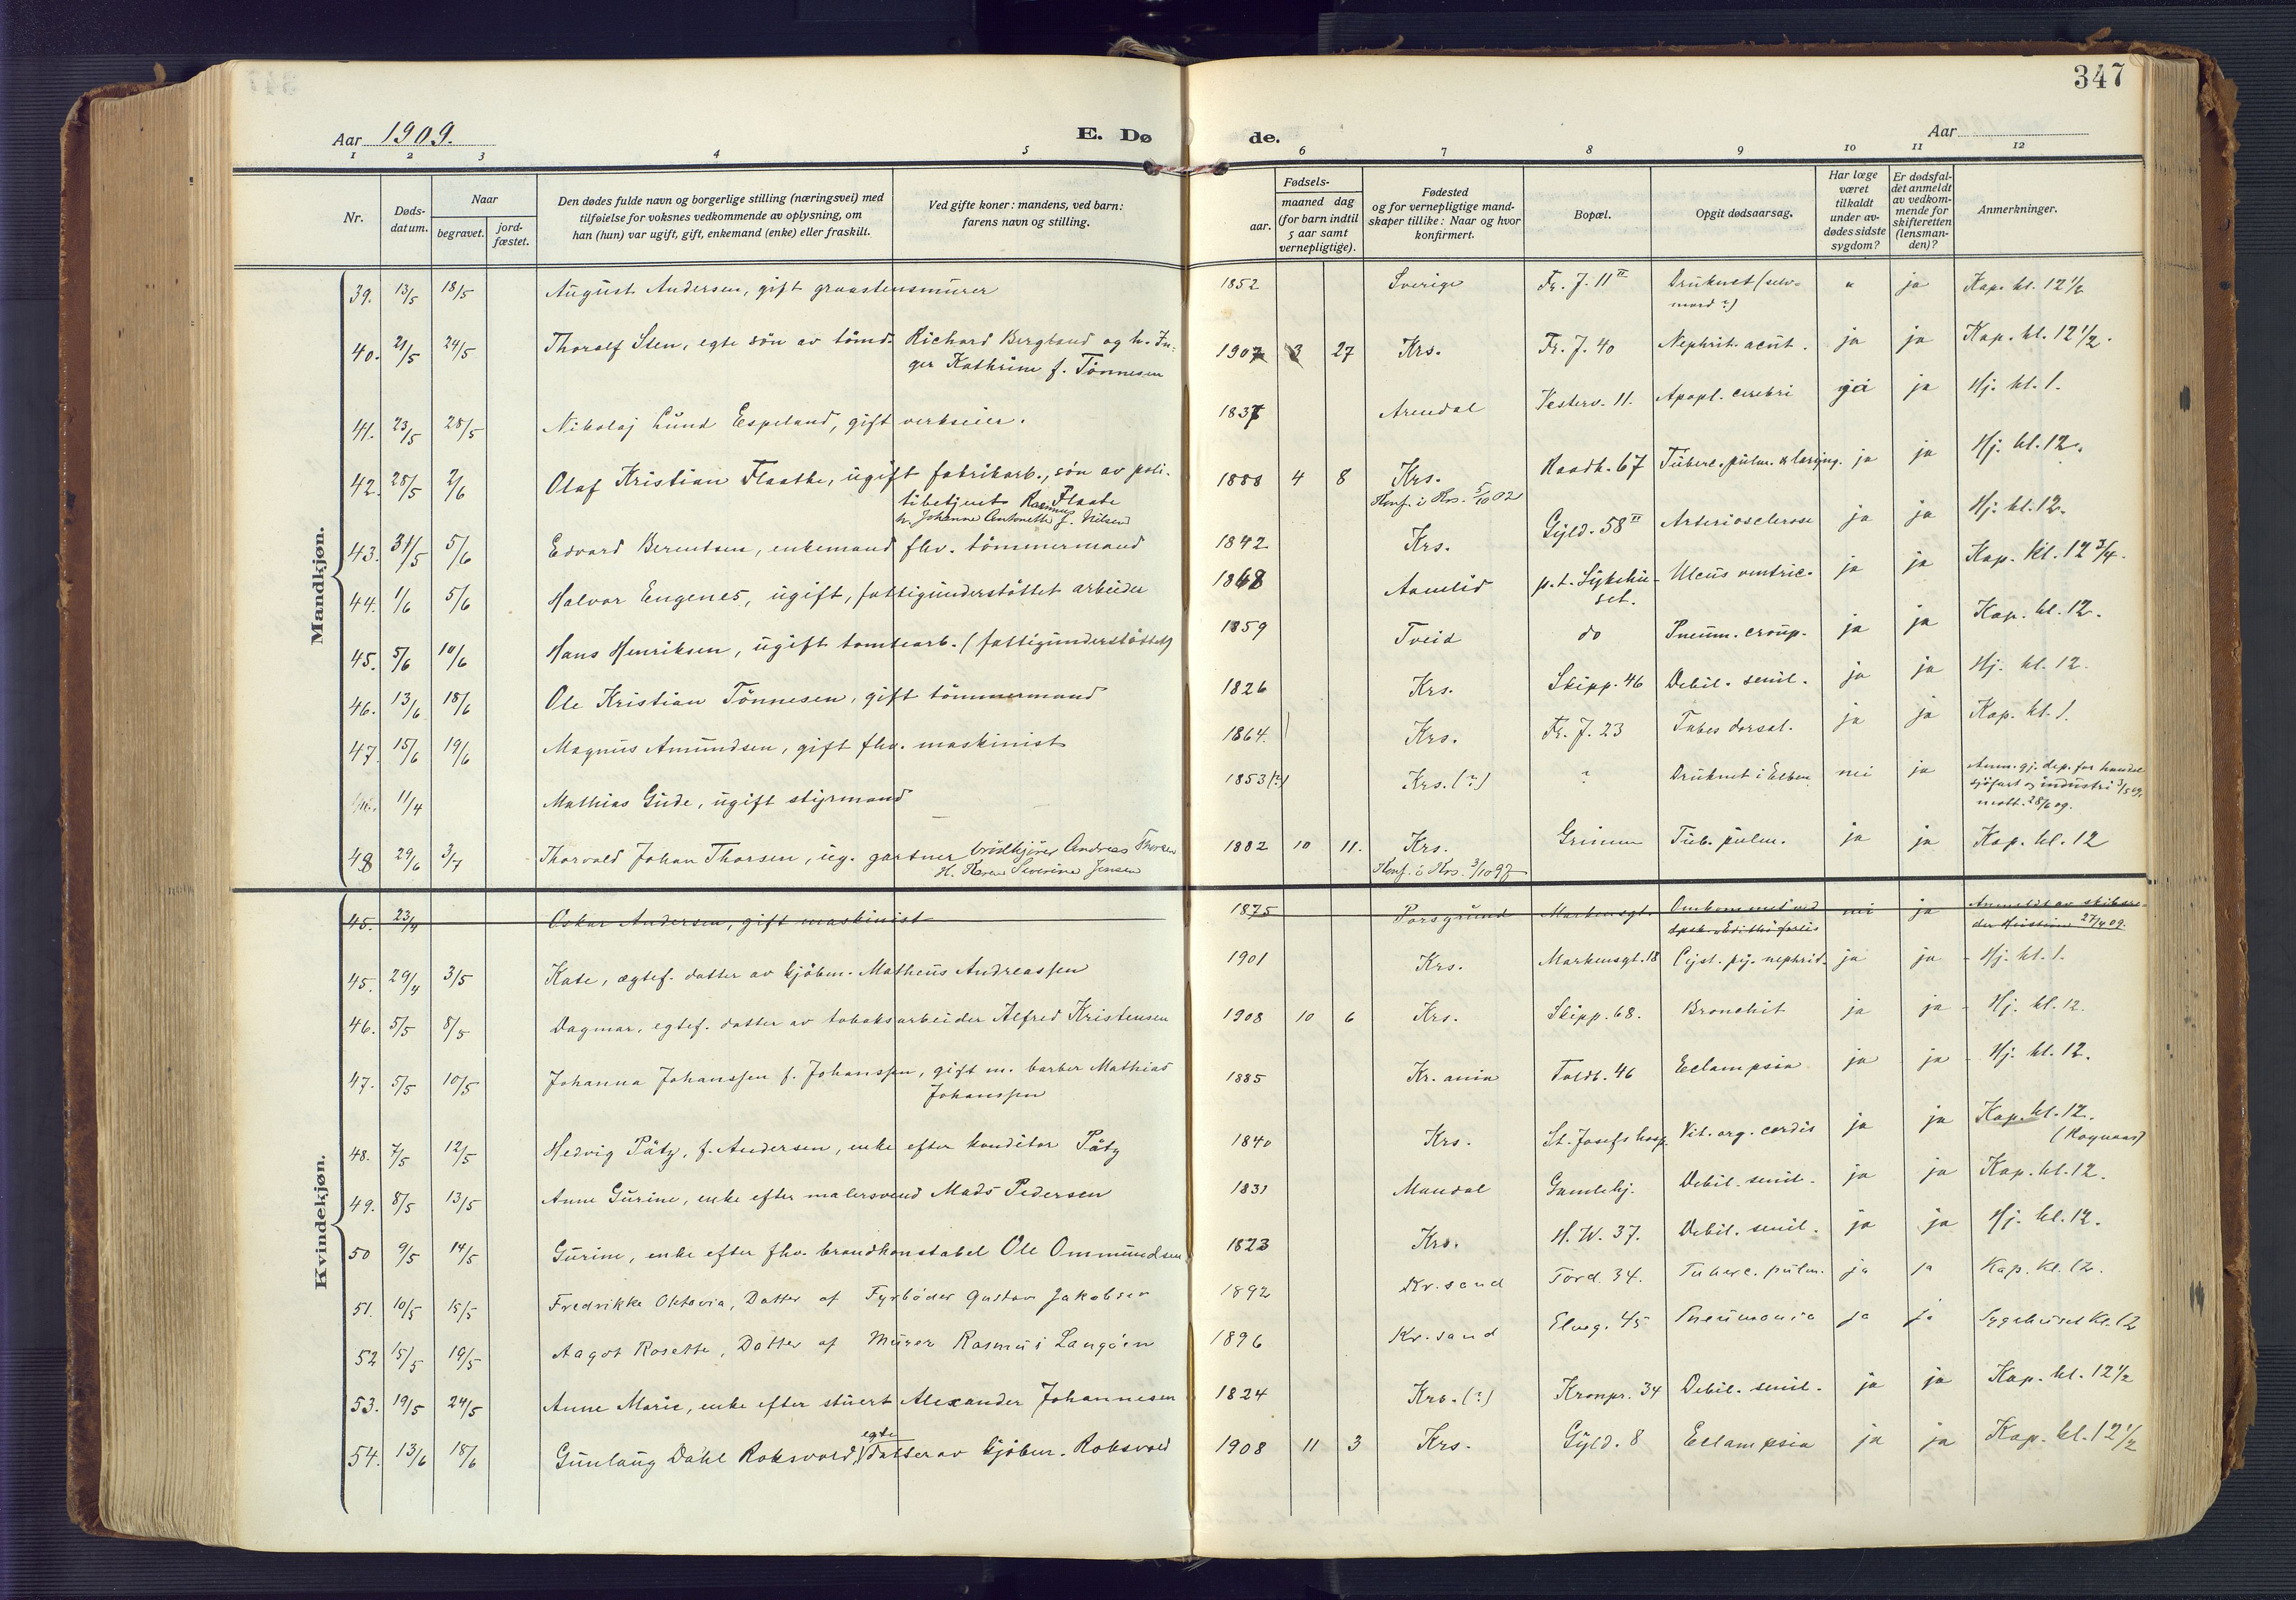 347
Aar 1909.
E. Dø de.
Aar
1 2 3 4 5 6 7 8 9 10 11 12
Nr.
Døds-datum.
Naar
begravet.
jord-fæstet.
Den dødes fulde navn og borgerlige stilling (næringsvei) med
tilføielse for voksnes vedkommende av oplysning, om
han (hun) var ugift, gift, enkemand (enke) eller fraskilt.
Ved gifte koner: mandens, ved barn:
farens navn og stilling.
Fødsels-
aar. maaned dag
(for barn indtil
5 aar samt
vernepligtige).
Fødested
og for vernepligtige mand-
skaper tillike: Naar og hvor
konfirmert.
Bopæl.
Opgit dødsaarsag.
Har læge
været
tilkaldt
under av-
dødes sidste
sygdom?
Er dødsfal-
det anmeldt
av vedkom-
mende for
skifteretten
(lensman-
den)?
Anmerkninger.
Mandkjøn.
39. 13/5 18/5 August Andersen, gift graastensmurer 1852 Sverige Fr. J. 11 II Druknet (selv-
mord?) " ja Kap. kl. 12 1/2
40. 21/5 24/5 Thoralf Sten, egte søn av tømd. Richard Berglund og h. In-
ger Kathrine f. Tønnesen 1907 3 27 Krs. Fr. J. 40 Nephrit. acut. ja ja Kap. kl. 12 1/2.
41. 23/5 28/5 Nikolaj Lund Espeland, gift verkseier. 1837 Arendal Vesterv. 11. Apopl. cerebri ja ja Hj. kl. 1.
42. 28/5 2/6 Olaf Kristian Flaathe, ugift fabrikarb., søn av poli-
tibetjent Rasmus Flaate
h. Johanne Antonette f. Nilsen 1888 4 8 Krs.
Konf. i Krs. 5/10 02 Raadh. 67 Tuberc. pulm. & laryng. ja ja Hj. kl. 12.
43. 31/5 5/6 Edvard Berentsen, enkemand fhv. tømmermand 1842 Krs. Gyld. 58 II Arteriosclerose ja ja Hj. kl. 12.
44. 1/6 5/6 Halvor Engenes, ugift, fattigunderstøttet arbeider 1868 Aamlid p. t. Sykehu-
set. Ulcus ventric. ja ja Kap. kl. 12 3/4.
45. 5/6 10/6 Hans Henriksen, ugift tomtearb. (fattigunderstøttet) 1859 Tveid do Pneum. croup. ja ja Kap. kl. 12.
46. 13/6 18/6 Ole Kristian Tønnesen, gift tømmermand 1826 Krs. Skipp. 46 Debil. senil. ja ja Hj. kl. 12.
47. 15/6 19/6 Magnus Amundsen, gift fhv. maskinist 1864. Krs. Fr. J. 23 Tabes dorsal. ja ja Kap. kl. 1.
11/4 Mathias Gude, ugift styrmand 1853(?) Krs. (?) ? Druknet i Elben nei ja Anm. gj. dep. for handel
sjøfart og industri 3/5 09.
mott. 28/6 09.
48 29/6 3/7 Thorvald Johan Thorsen, ug. gartner Andreas Thorsen
H. Karen Severine Jensen 1882 10 11. Krs.
Konf. i Krs. 3/10 97 Grimm Tub. pulm. ja ja Kap. kl. 12
Kvindekjøn.
45. 23/4 Oskar Andersen, gift maskinist 1875 Porsgrund Markensgt. Omkommet ved nei ja Anmeldt av skibsre-
27/4 09.
45. 29/4 3/5 Kate, ægtef. datter av kjøbm. Matheus Andreassen 1901 Krs. Markensgt. 18 Cyst. py. nephrid. ja ja Hj. kl. 1.
46. 5/5 8/5 Dagmar, egtef. datter av tobaksarbeider Alfred Kristensen 1908 10 6 Krs. Skipp. 68. Bronchit ja ja Hj. kl. 12.
47. 5/5 10/5 Johanna Johanssen f. Johanssen, gift m. barber Mathias
Johanssen 1885 Kr.ania Toldb. 46 Eclampsia ja ja Hj. kl. 12.
48. 7/5 12/5 Hedvig Pätz, f. Andersen, enke efter konditor Pätz 1840 Krs. St. Josefs hosp. Vit. org. cordis ja ja Kap. kl. 12.
49. 8/5 13/5 Anne Gurine, enke efter malersvend Mads Pedersen 1831 Mandal Gamlehj. Debil. senil. ja ja Kap. kl. 12.
50 9/5 14/5 Gurine, enke efter fhv. brandkonstabel Ole Ommundsen 1823 Krs. H. W. 37. Debil. senil. ja ja Hj. kl. 12.
51. 10/5 15/5 Fredrikke Oktavia, Datter af Fyrbøder Gustav Jakobsen 1892 Kr.sand Tord. 34. Tuberc. pulm. ja ja Kap. kl. 12.
52 15/5 19/5 Aagot Rosette, Datter af Murer Rasmus Langøen 1896 Kr.sand Elveg. 45 Pneumonia ja ja Sygehuset kl. 12
53. 19/5 24/5 Anne Marie, enke efter stuert Alexander Johannesen 1824 Krs. (?) Kronpr. 34 Debil. senil. ja ja Kap. kl. 12 1/2
54. 13/6 18/6 Gunlaug Dahl Roksvold, egte datter av kjøbm. Roksvold 1908 11 3 Krs. Gyld. 8 Eclampsia ja ja Kap. kl. 12 1/2